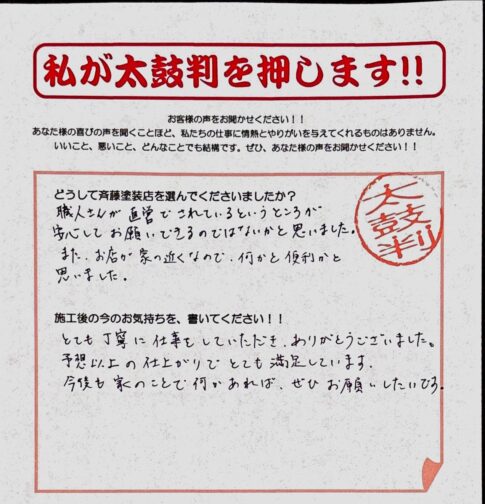 私が太鼓判を押します!!
お客様の声をお聞かせください！！
あなた様の喜びの声を聞くことほど、私たちの仕事に情熱とやりがいを与えてくれるものはありません。
いいこと、悪いこと、どんなことでも結構です。ぜひ、あなた様の声をお聞かせください！！
どうして斉藤塗装店を選んでくださいましたか？
職人さんが直営でされているというところが
安心してお願いできるのではないかと思いました。
また、お店が家の近くなので、何かと便利かと
思いました。
太鼓判
施工後の今のお気持ちを、書いてください！！
とても丁寧に仕事をしていただき、ありがとうございました。
予想以上の仕上がりでとても満足しています。
今後も家のことで何かあれば、ぜひお願いしたいです。